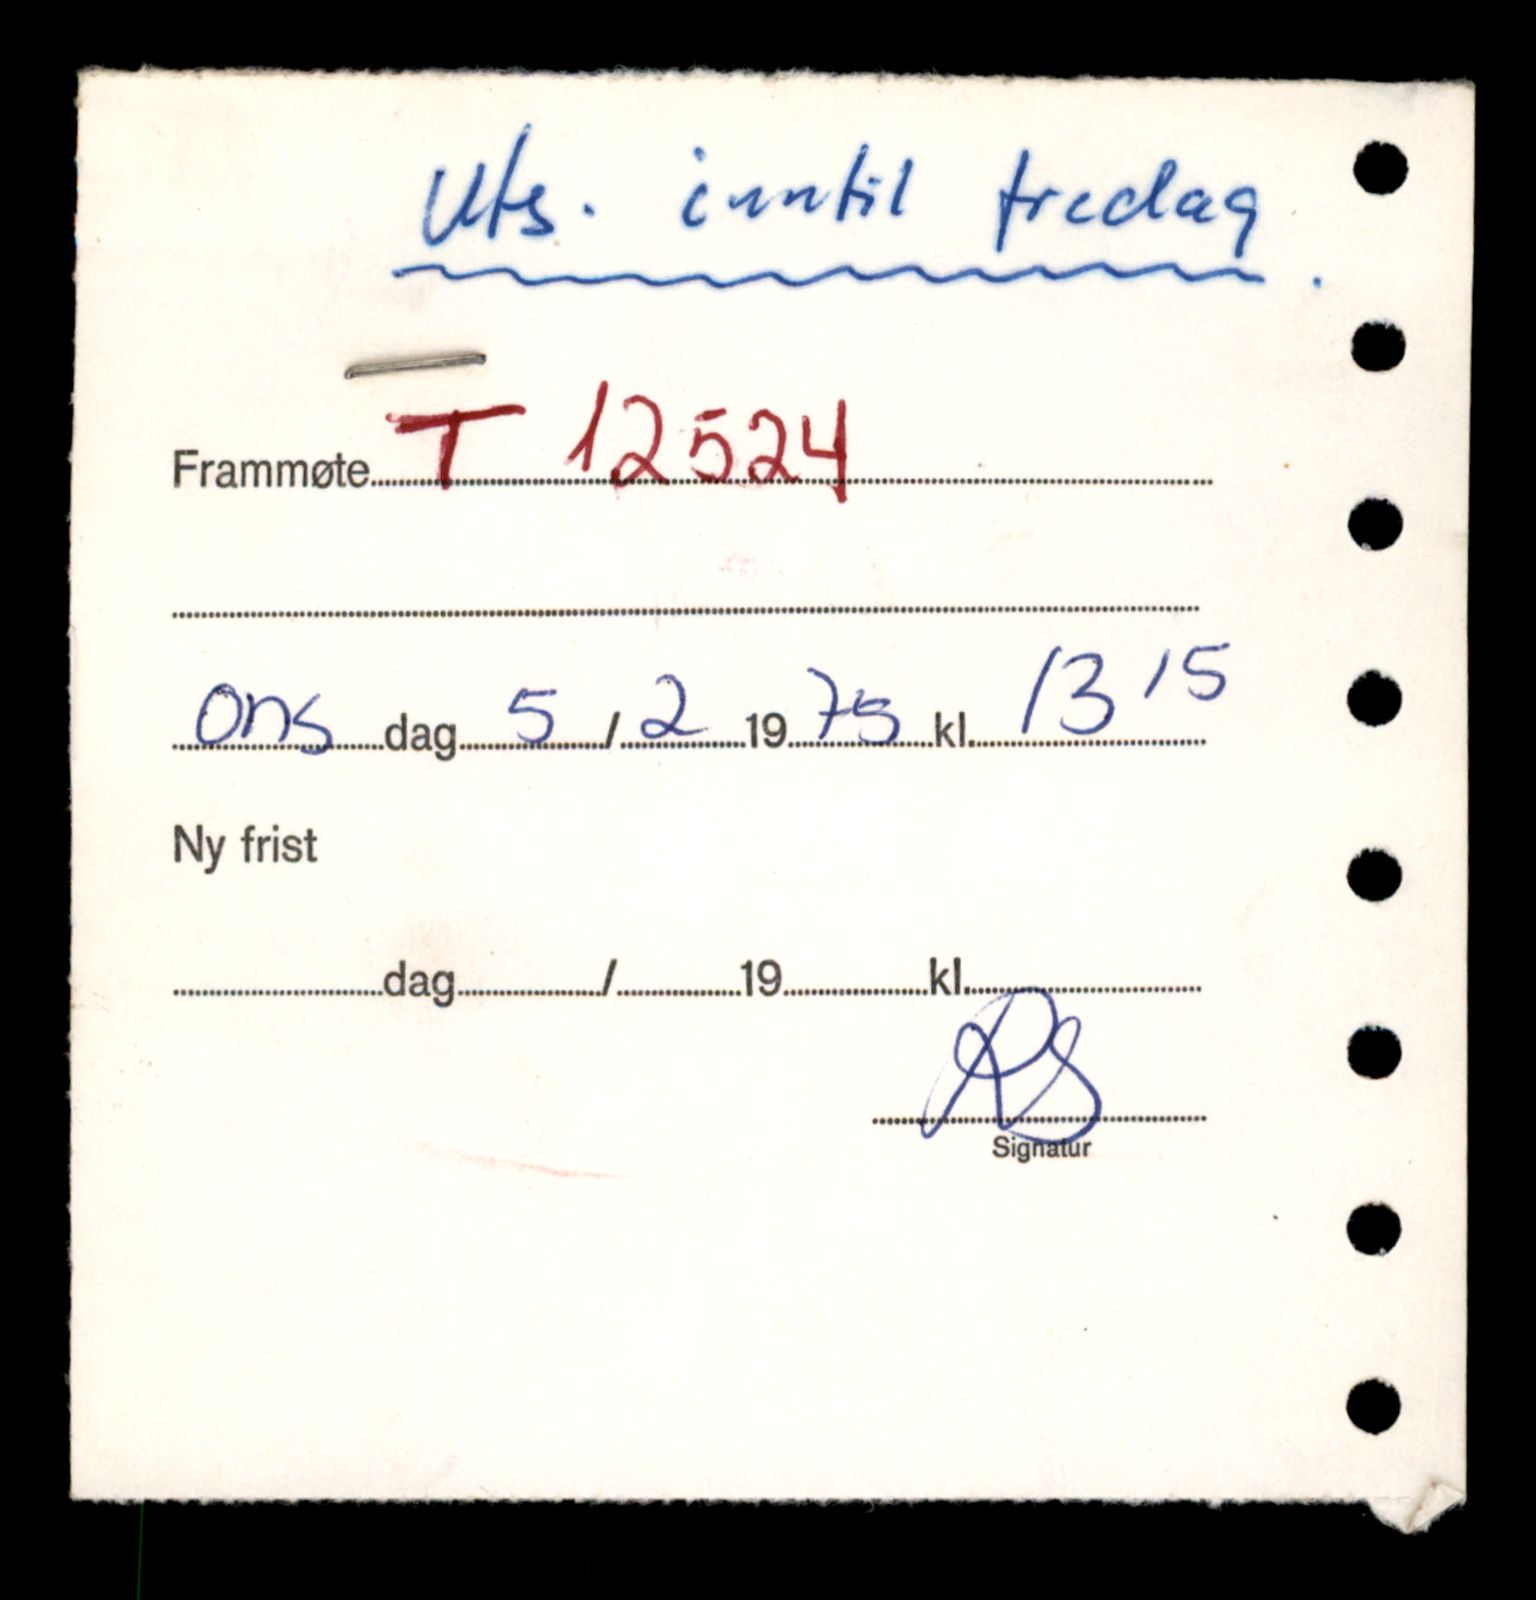 Uts. inntil fredag.
Frammøte T 12524
Ons dag 5 / 2 1975 kl. 13 15
Ny frist
dag / 19 kl.
RS
Signatur